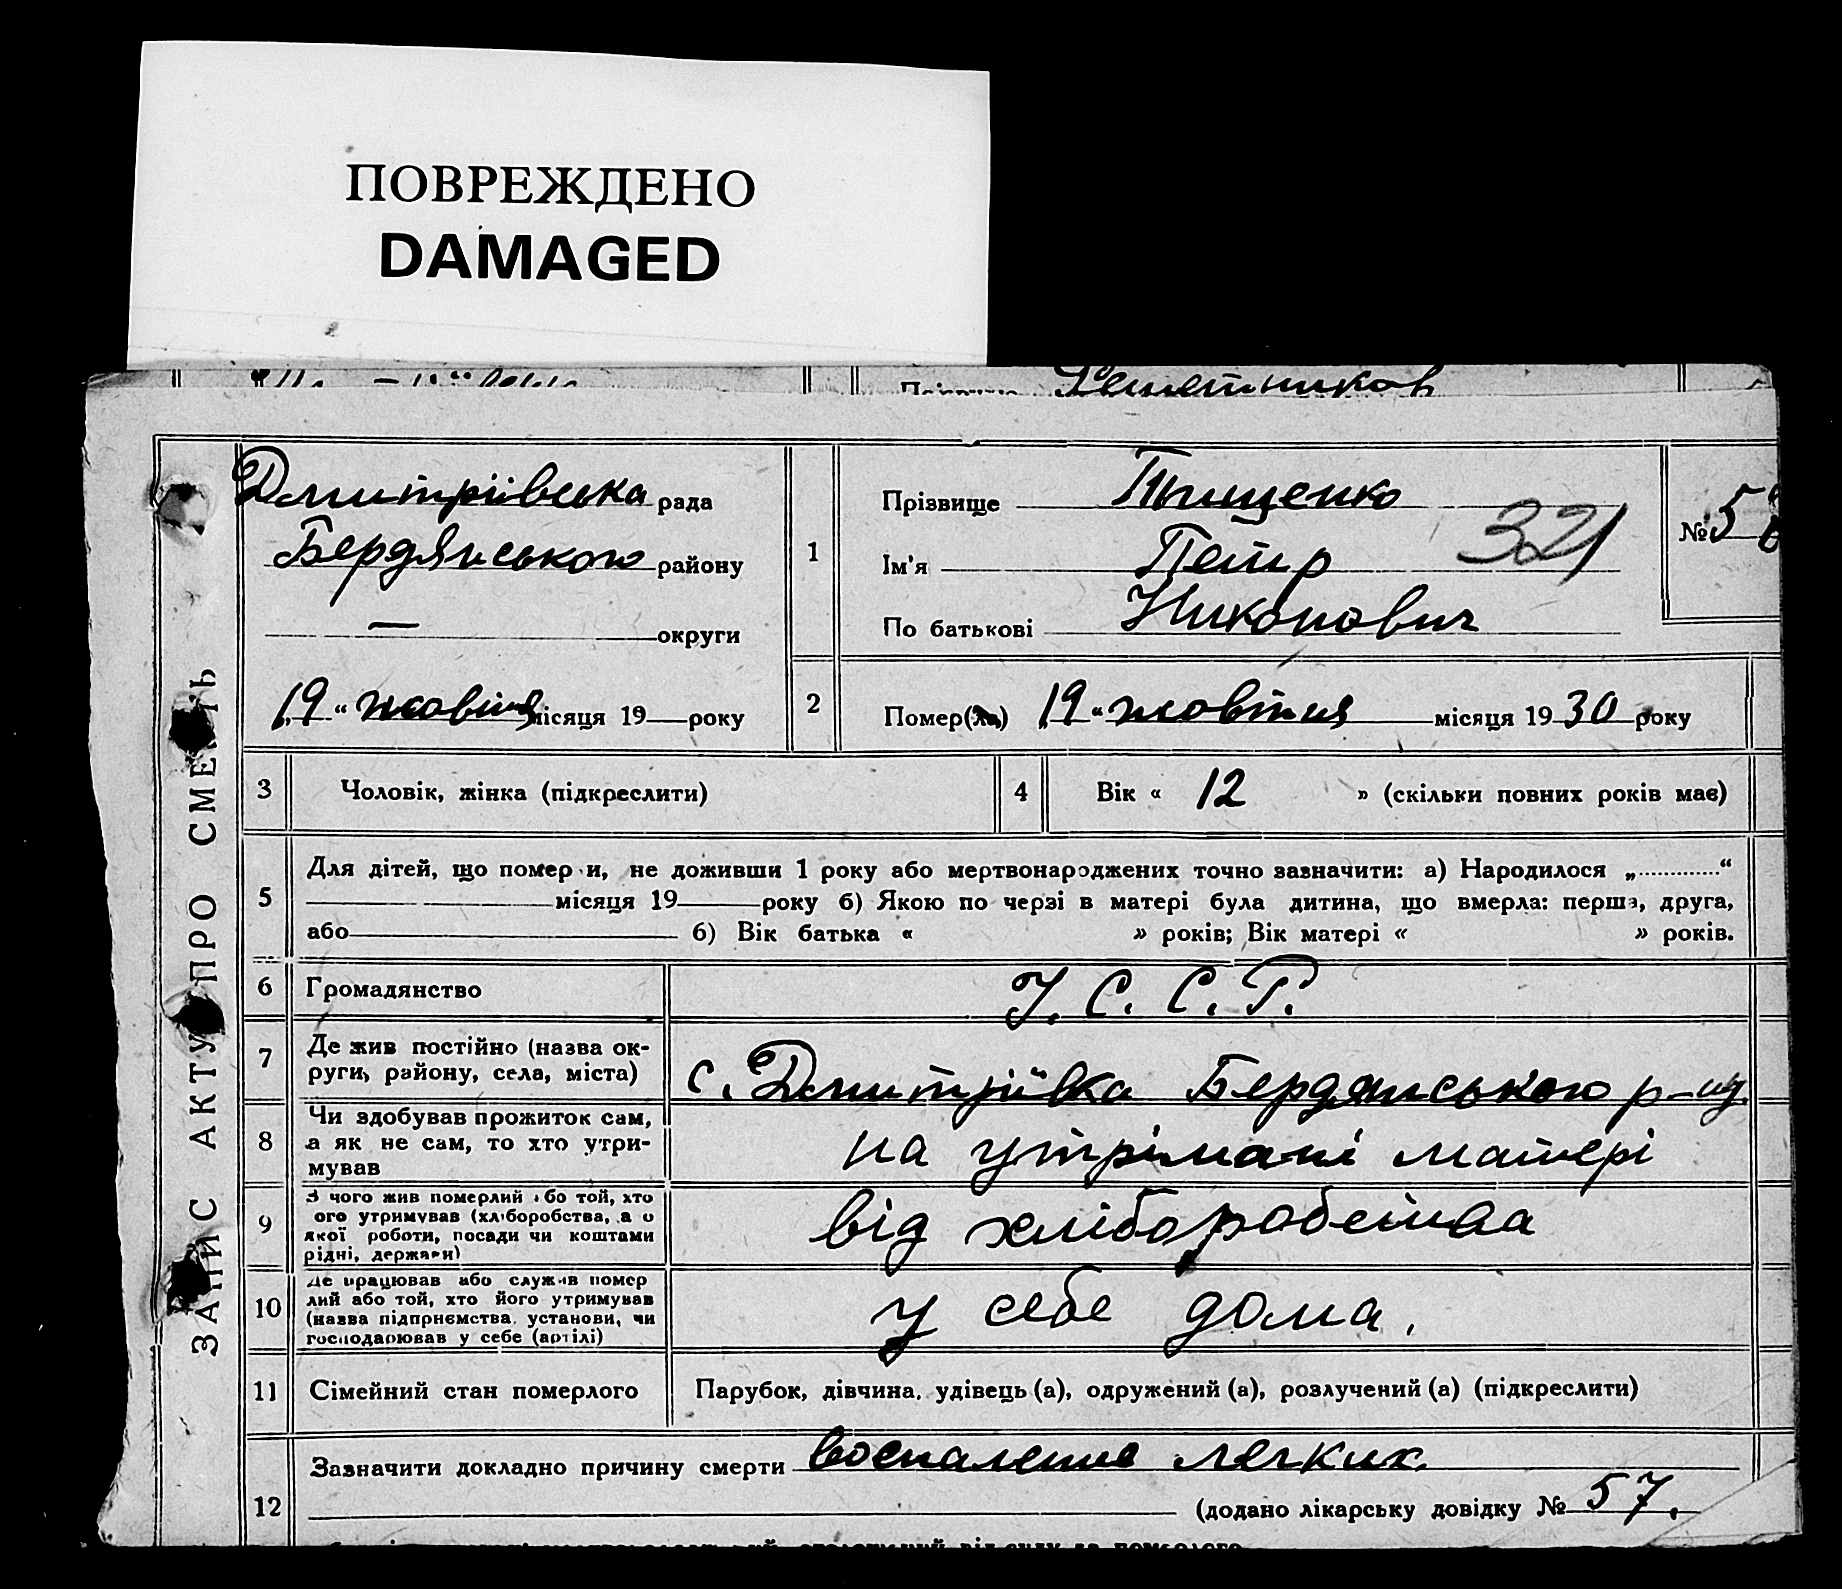 ПОВРЕЖДЕНО
DAMAGED
ЗАПИС АКТУ ПРО СМЕРТЬ
Дмитріївська рада
Бердянського району
— округи
„19“ жовтня місяця 19 року
1
Прізвище Тищенко
Ім'я Петр
321
По батькові Никонович
№ 56
2
Помер(ла) „19“ жовтня місяця 1930 року
3 Чоловік, жінка (підкреслити)
4 Вік « 12 » (скільки повних років має)
5 Для дітей, що померли, не доживши 1 року або мертвонароджених точно зазначити: а) Народилося „ “
місяця 19 року б) Якою по черзі в матері була дитина, що вмерла: перша, друга,
або б) Вік батька « » років; Вік матері « » років.
6 Громадянство У. С. С. Р.
7 Де жив постійно (назва ок-
руги, району, села, міста) с. Дмитріївка Бердянського р-ну.
8 Чи здобував прожиток сам,
а як не сам, то хто утри-
мував на утрімані матері
9 З чого жив померлий або той, хто
ого утримував (хліборобства, а о
якої роботи, посади чи коштами
рідні, держави) від хліборобства
10 Де працював або служив помер
лий або той, хто його утримував
(назва підприємства, установи, чи
господарював у себе (артілі) у себе дома.
11 Сімейний стан померлого Парубок, дівчина, удівець (а), одружений (а), розлучений (а) (підкреслити)
12 Зазначити докладно причину смерти воспаление легких.
(додано лікарську довідку № 57.